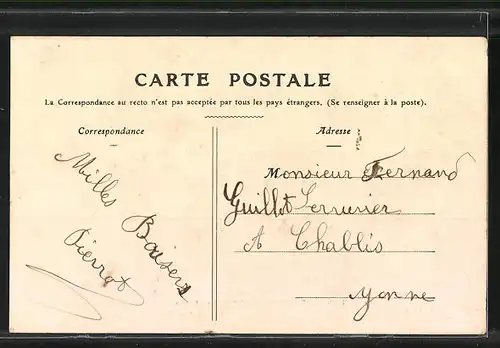 CARTE POSTALE
La Correspondance au recto n'est pas acceptée par tous les pays étrangers. (Se renseigner à la poste).
Correspondance
Milles
Baisers
Pierrot
Adresse
Monsieur Fernand
Guillot Serrurier
A Chablis
Yonne